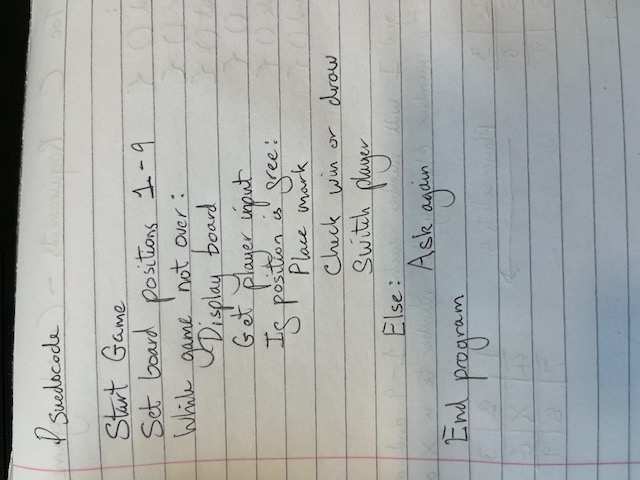 Psuedocode
Start Game
Set board positions 1-9
While game not over:
Display board
Get player input
If position is free:
Place mark
Check win or draw
Switch player
Else:
Ask again
End program